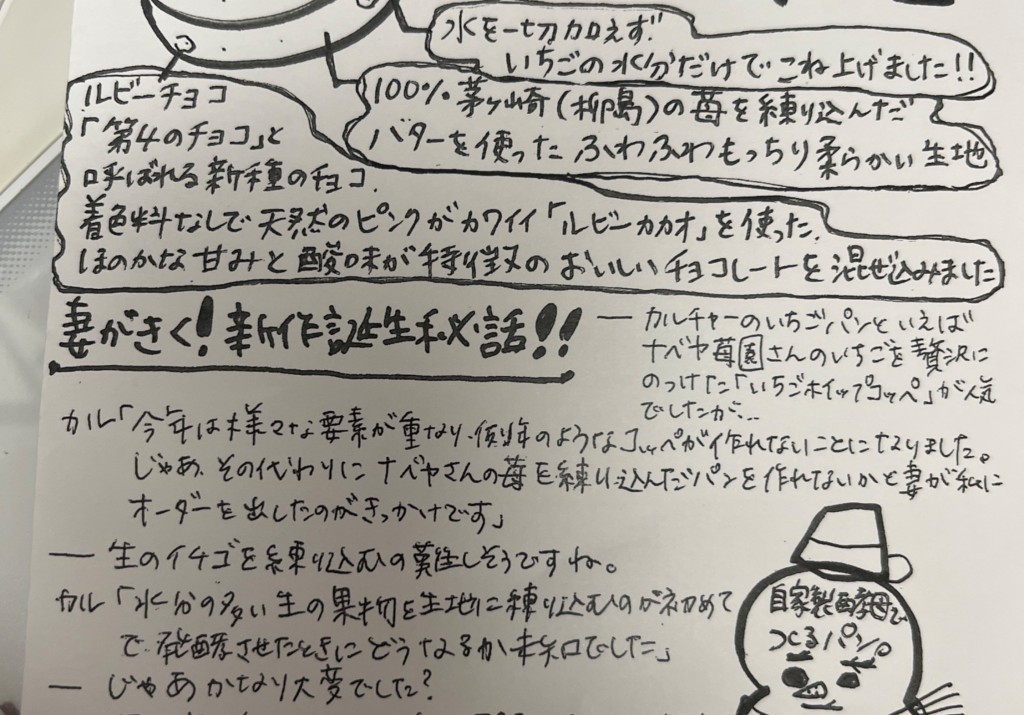 水を一切加えず
いちごの水分だけでこね上げました!!
100%茅ヶ崎(柳島)の苺を練り込んだ
バターを使ったふわふわもっちり柔らかい生地
ルビーチョコ
「第4のチョコ」と
呼ばれる新種のチョコ.
着色料なしで天然のピンクがカワイイ「ルビーカカオ」を使った.
ほのかな甘みと酸味が特徴のおいしいチョコレートを混ぜ込みました
妻がきく!新作誕生秘話!!
― カルチャーのいちごパンといえば
ナベヤ苺園さんのいちごを贅沢に
のっけた「いちごホイップコッペ」が人気
でしたが…
カル「今年は様々な要素が重なり、例年のようなコッペが作れないことになりました。
じゃあ、その代わりにナベヤさんの苺を練り込んだパンを作れないかと妻が私に
オーダーを出したのがきっかけです」
― 生のイチゴを練り込むの難しそうですね。
カル「水分の多い生の果物を生地に練り込むのが初めて
で、発酵させたときにどうなるか未知でした」
― じゃあかなり大変でした?
自家製酵母で
つくるパン。